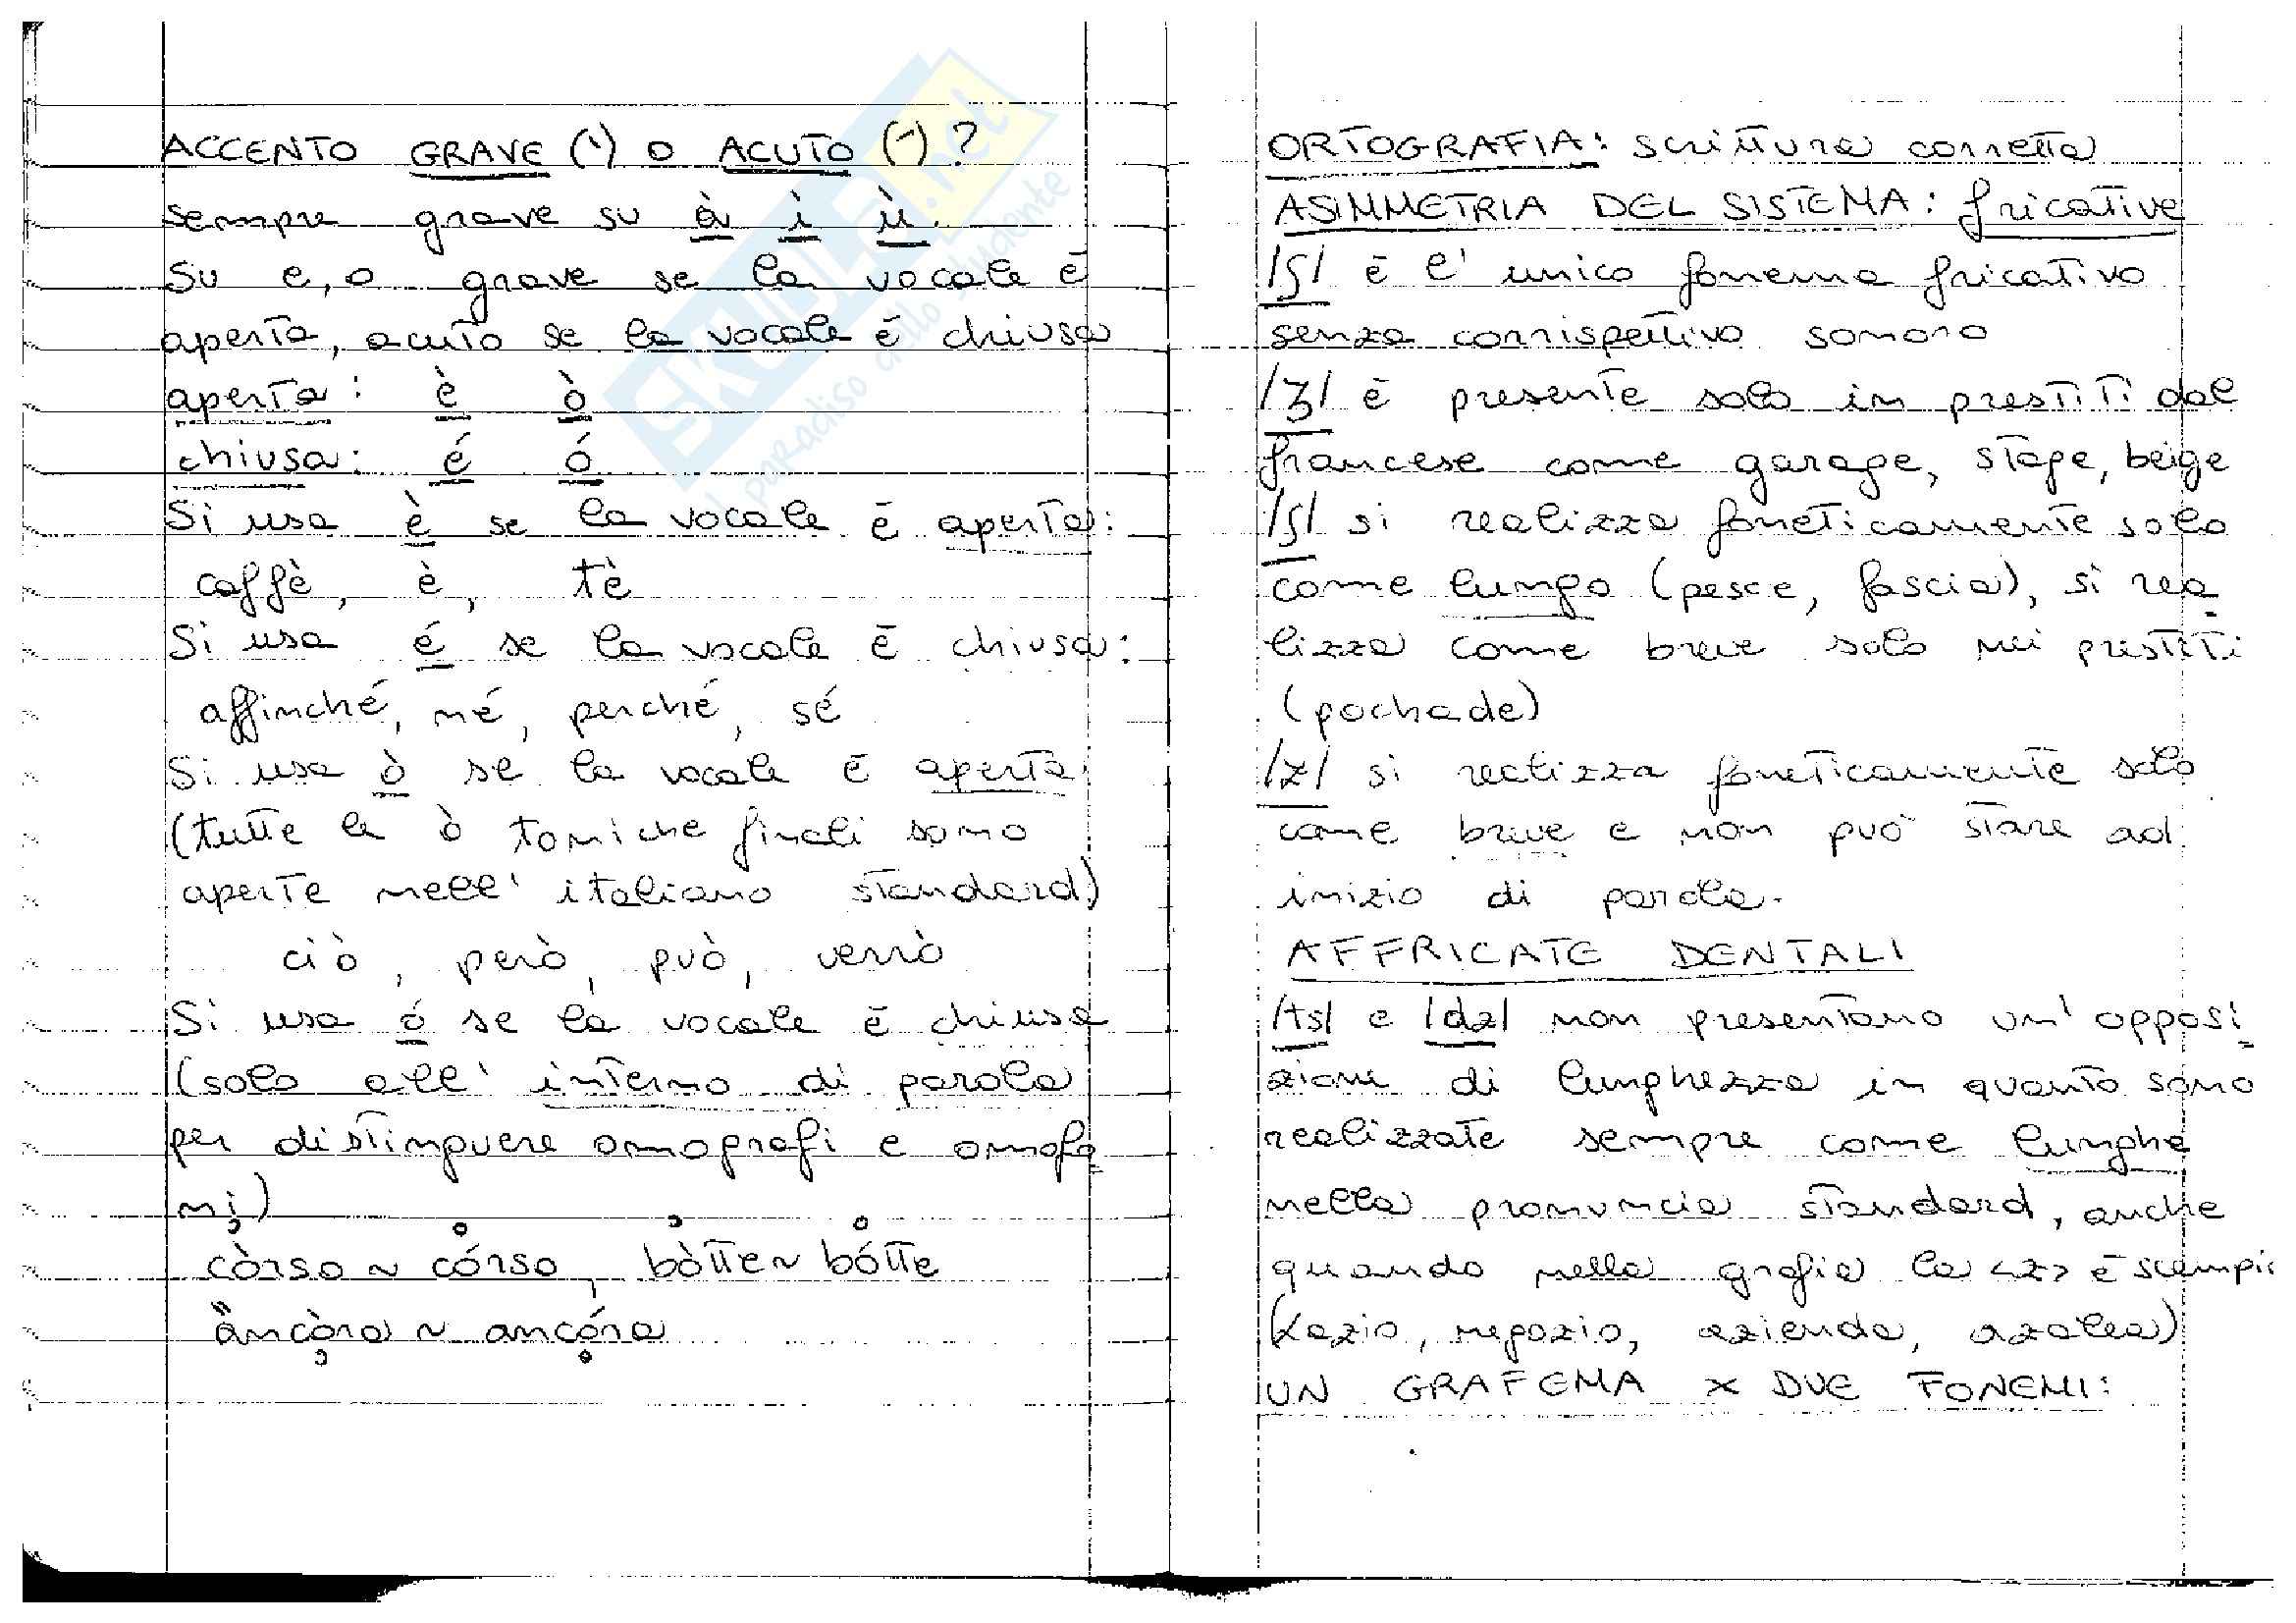 ACCENTO GRAVE (`) O ACUTO (´)?
sempre grave su à ì ù.
Su e, o grave se la vocale è
aperta, acuto se la vocale è chiusa
aperta: è ò
chiusa: é ó
Si usa è se la vocale è aperta:
caffè, è, tè
Si usa é se la vocale è chiusa:
affinché, né, perché, sé
Si usa ò se la vocale è aperta
(tutte le ò toniche finali sono
aperte nell' italiano standard)
ciò, però, può, verrò
Si usa ó se la vocale è chiusa
(solo all' interno di parola
per distinguere omografi e omofo
ni)
còrso ~ córso, bòtte ~ bótte
àncòra ~ ancóra
ORTOGRAFIA: scrittura corretta
ASIMMETRIA DEL SISTEMA: fricative
/ʃ/ è l' unico fonema fricativo
senza corrispettivo sonoro
/ʒ/ è presente solo in prestiti dal
francese come garage, stage, beige
/ʃ/ si realizza foneticamente solo
come lungo (pesce, fascia), si rea
lizza come breve solo nei prestiti
(pochade)
/z/ si realizza foneticamente solo
come breve e non può stare ad
inizio di parola.
AFFRICATE DENTALI
/ts/ e /dz/ non presentano un' opposi
zione di lunghezza in quanto sono
realizzate sempre come lunghe
nella pronuncia standard, anche
quando nella grafia la <z> è scempia
(Lazio, negozio, azienda, azalea)
UN GRAFEMA x DUE FONEMI:
SKUOLA.net
il paradiso dello studente